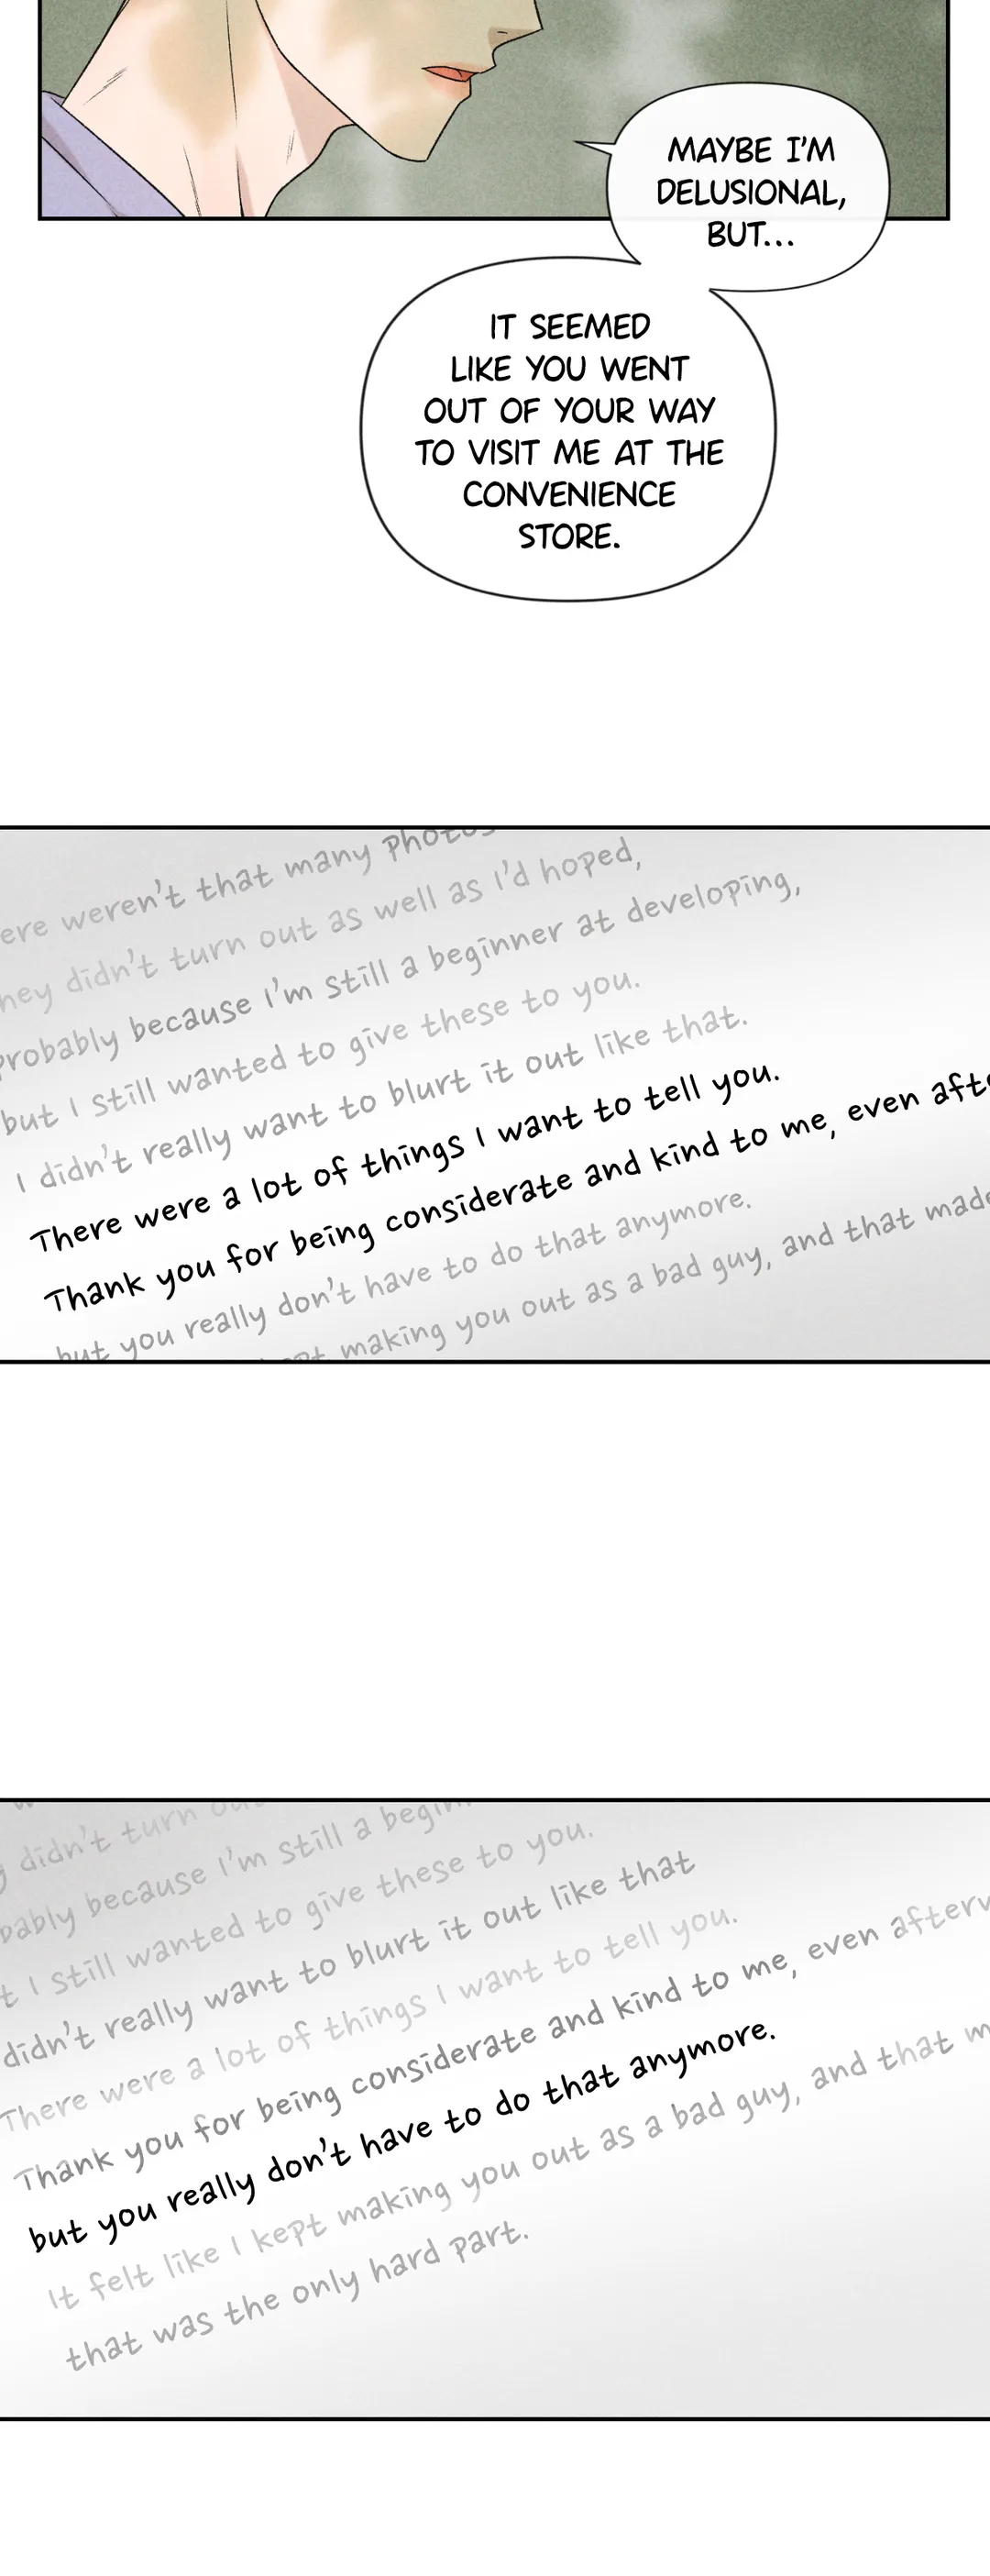 MAYBE I'M
DELUSIONAL,
BUT...
IT SEEMED
LIKE YOU WENT
OUT OF YOUR WAY
TO VISIT ME AT THE
CONVENIENCE
STORE.
ere weren't that many photos
hey didn't turn out as well as I'd hoped,
probably because I'm still a beginner at developing,
but I still wanted to give these to you.
I didn't really want to blurt it out like that.
There were a lot of things I want to tell you.
Thank you for being considerate and kind to me, even afte
but you really don't have to do that anymore.
ept making you out as a bad guy, and that made
y didn't turn ou
bably because I'm still a begin
t I still wanted to give these to you.
didn't really want to blurt it out like that
There were a lot of things I want to tell you.
Thank you for being considerate and kind to me, even afterw
but you really don't have to do that anymore.
It felt like I kept making you out as a bad guy, and that m
that was the only hard part.